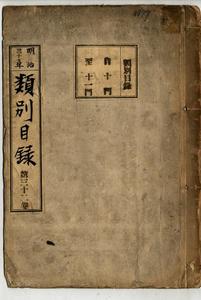 類別目録
自十門
至十一門
明治
三十年
類別目録
第三十一卷